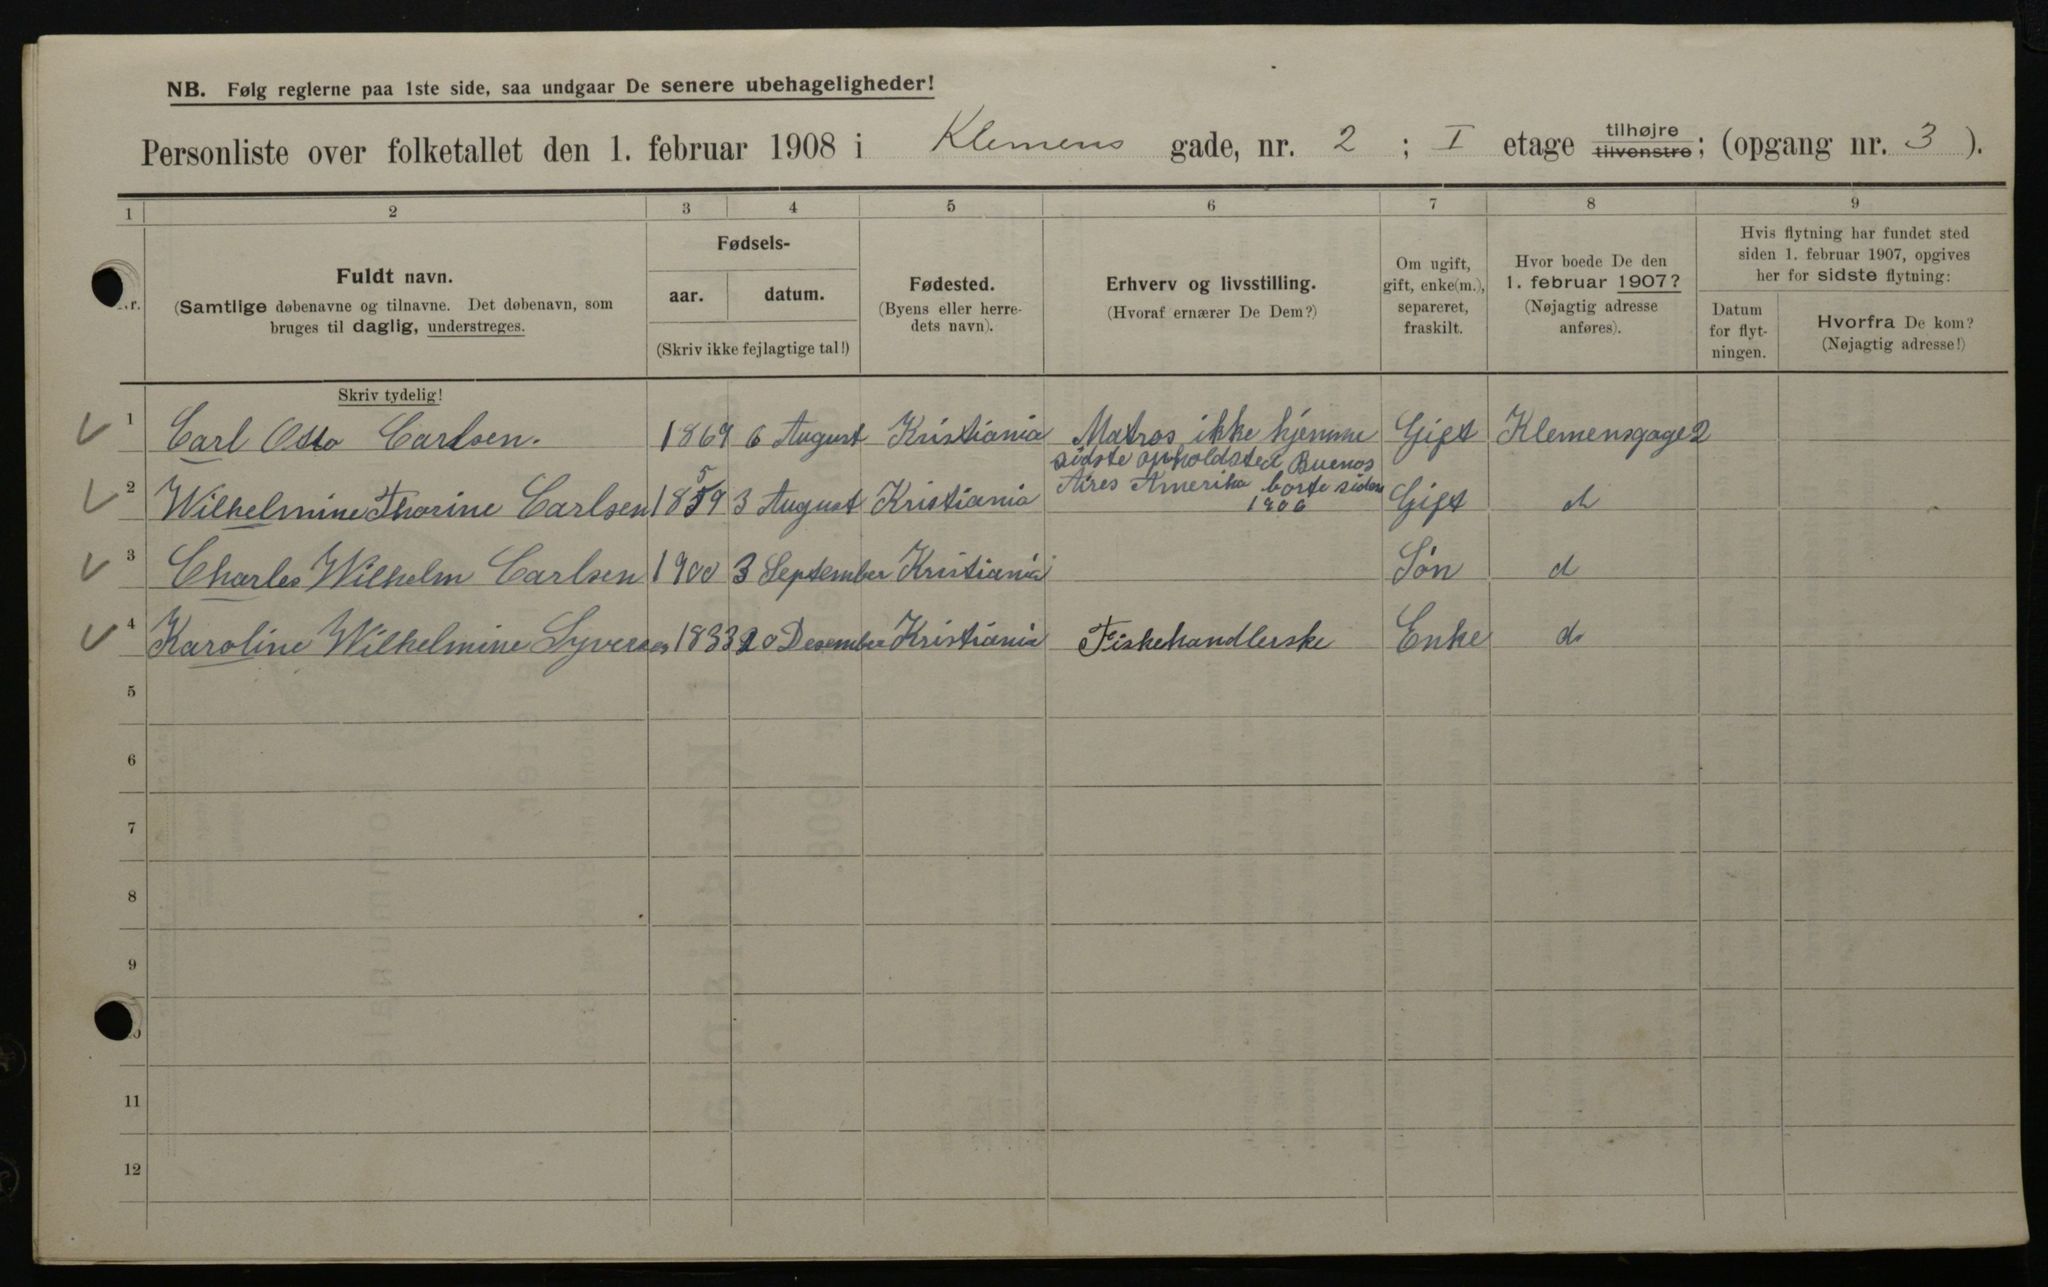 NB. Følg reglerne paa 1ste side, saa undgaar De senere ubehageligheder!
Personliste over folketallet den 1. februar 1908 i Klemens gade, nr. 2 ; I etage tilhøjre tilvenstre; (opgang nr. 3 ).
1 2 3 4 5 6 7 8 9
Nr.
Fuldt navn.
(Samtlige døbenavne og tilnavne. Det døbenavn, som
bruges til daglig, understreges.
Skriv tydelig!
Fødsels-
aar. datum.
(Skriv ikke fejlagtige tal!)
Fødested.
(Byens eller herre-
dets navn).
Erhverv og livsstilling.
(Hvoraf ernærer De Dem?)
Om ugift,
gift, enke(m.),
separeret,
fraskilt.
Hvor boede De den
1. februar 1907?
(Nøjagtig adresse
anføres).
Hvis flytning har fundet sted
siden 1. februar 1907, opgives
her for sidste flytning:
Datum
for flyt-
ningen.
Hvorfra De kom?
(Nøjagtig adresse!)
1 Carl Otto Carlsen. 1869 6 August Kristiania Matros ikke hjemme Gift Klemensgage 2
sidste opholdsted Buenos
Aires Amerika borte siden
1906
2 Wilhelmine Thorine Carlsen 1859 3 August Kristiania Gift d
3 Charles Wilhelm Carlsen 1900 3 September Kristiania Søn d
4 Karoline Wilhelmine Syversen 1833 20 Desember Kristiania Fiskehandlerske Enke do
5
6
7
8
9
10
11
12